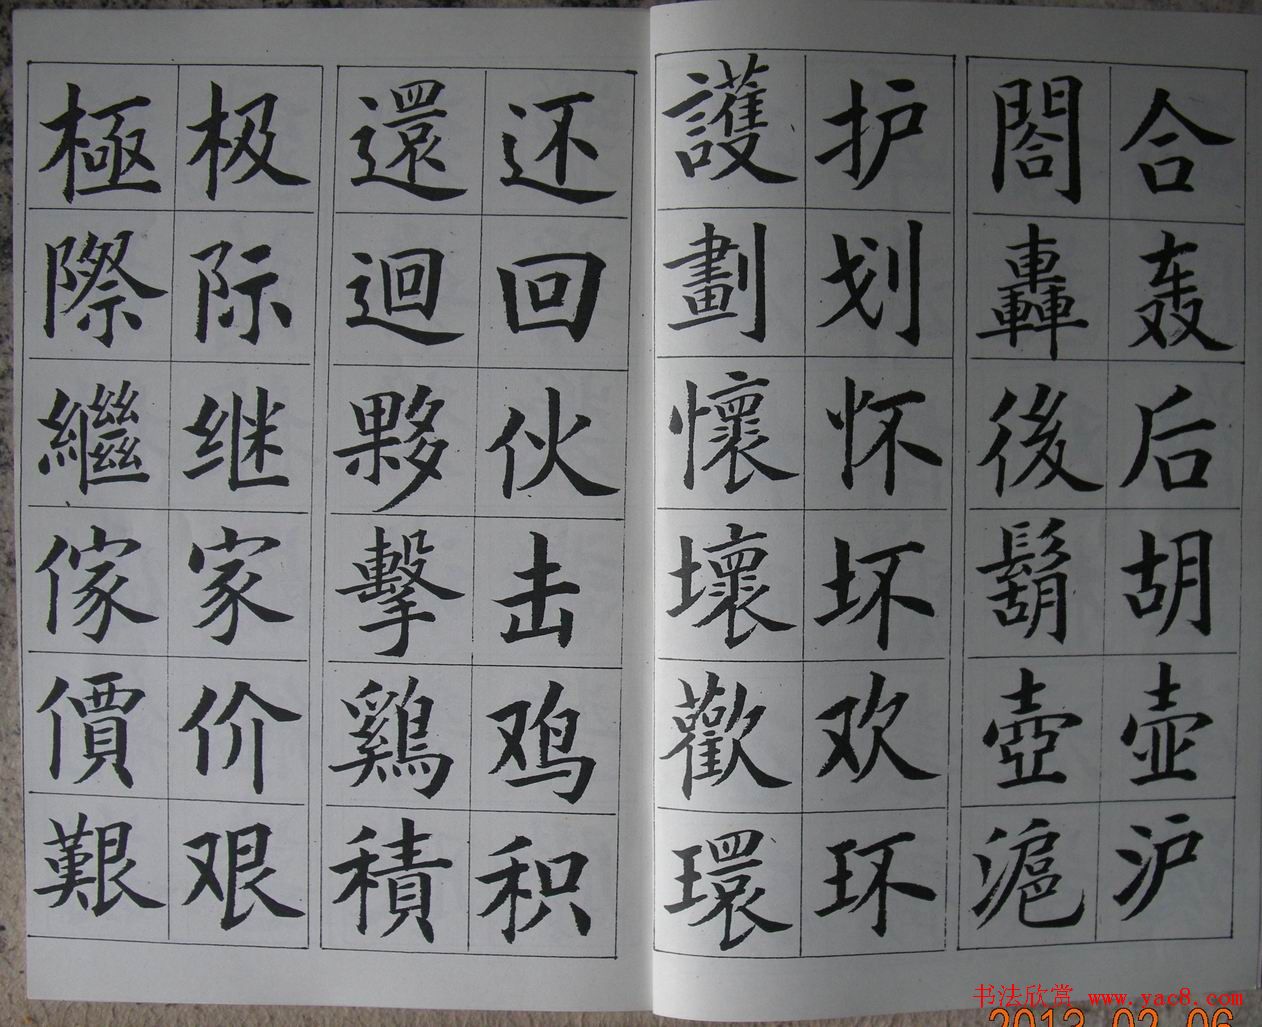 合轰后胡壶沪
閤轟後鬍壺滬
护划怀坏欢环
護劃懷壞歡環
还回伙击鸡积
還迴夥擊鷄積
极际继家价艰
極際繼傢價艱
书法欣赏 www.yac8.com
2013 02 06